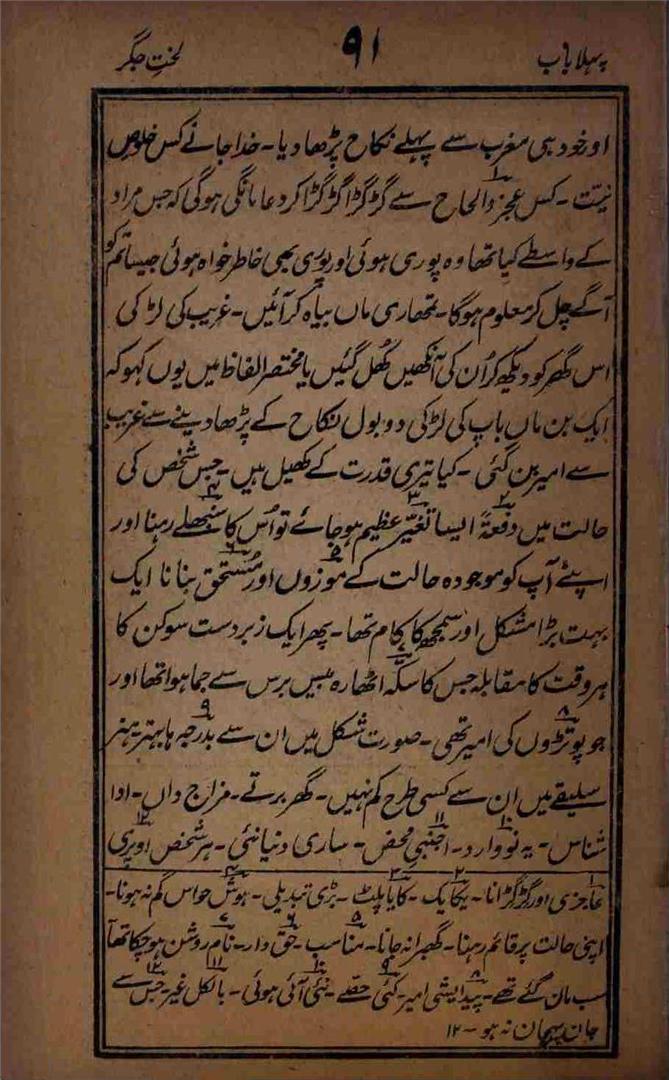 پہلا باب ۹۱ لختِ جگر
اور خود ہی مغرب سے پہلے نکاح پڑھا دیا۔ خدا جانے کس خلوص
نیّت۔ کس عجز والحاح۱ سے گڑگڑا گڑگڑا کر دعا مانگی ہوگی کہ جس مراد
کے واسطے کیا تھا وہ پوری ہوئی اور پوری بھی خاطر خواہ ہوئی جیسا تم کو
آگے چل کر معلوم ہوگا۔ تمھاری ماں بیاہ کر آئیں۔ غریب کی لڑکی
اس گھر کو دیکھ کر اُن کی آنکھیں کُھل گئیں یا مختصر الفاظ میں یوں کہو کہ
ایک بن ماں باپ کی لڑکی دو بول نکاح کے پڑھا دینے سے غریب
سے امیر بن گئی۔ کیا تیری قدرت کے کھیل ہیں۔ جس شخص کی
حالت میں دفعۃً۲ ایسا تغیّر عظیم۳ ہو جائے تو اُس کا سنبھلے۴ رہنا اور
اپنے آپ کو موجودہ حالت کے موزوں۵ اور مُستحق۶ بنانا ایک
بہت بڑا مشکل اور سمجھ کا کام تھا۔ پھر ایک زبردست سوکن کا
ہر وقت کا مقابلہ جس کا سکّہ۷ اٹھارہ بیس برس سے جما ہوا تھا اور
جو پوتڑوں۸ کی امیر تھی۔ صورت شکل میں ان سے بدرجہا۹ بہتر ہنر
سلیقے میں ان سے کسی طرح کم نہیں۔ گھر برتے۔ مزاج داں۔ ادا
شناس۔ یہ نووارد۱۰۔ اجنبیِ محض۱۱۔ ساری دنیا نئی۔ ہر شخص اوپری۱۲
۱ عاجزی اور گڑگڑانا۔ ۲ یکایک۔ ۳ کایا پلٹ۔ بڑی تبدیلی۔ ۴ ہوش حواس گم نہ ہونا۔
اپنی حالت پر قائم رہنا۔ گھبرا نہ جانا۔ ۵ مناسب۔ ۶ حق دار۔ ۷ نام روشن ہو چکا تھا
سب مان گئے تھے۔ ۸ پیدایشی امیر۔ ۹ کئی حصّے۔ ۱۰ نئی آئی ہوئی۔ ۱۱ بالکل غیر۔ ۱۲ جس سے
جان پہچان نہ ہو۔ ۱۲